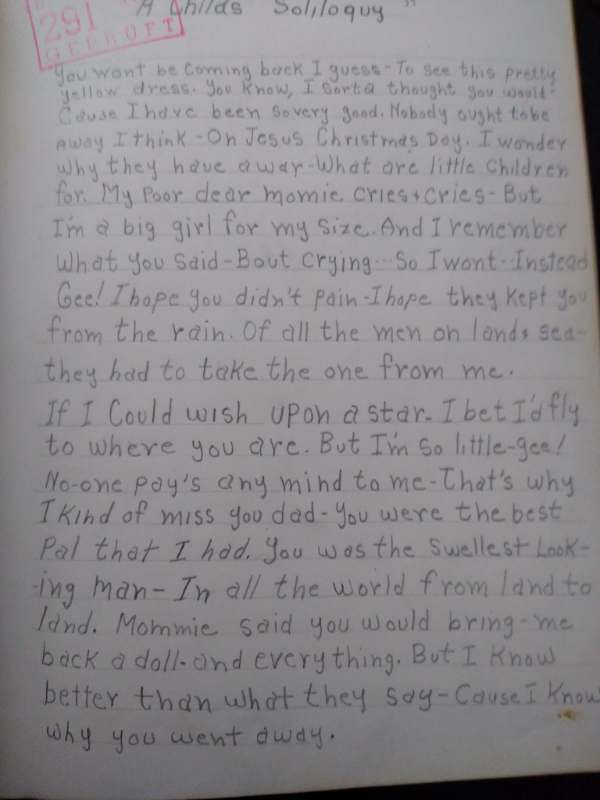 "A Childs Soliloquy"
291
GEPRÜFT
You wont be coming back I guess-To see this pretty
yellow dress. You know, I sorta thought you would-
Cause I have been so very good. Nobody ought to be
away I think-On Jesus Christmas Day. I wonder
why they have a war-What are little children
for. My poor dear momie cries + cries-But
I'm a big girl for my size. And I remember
what you said-Bout crying...So I wont..Instead
Gee! I hope you didn't pain-I hope they kept you
from the rain. Of all the men on land + sea-
they had to take the one from me.
If I could wish upon a star-I bet I'd fly
to where you are. But I'm so little-gee!
No-one pay's any mind to me-That's why
I kind of miss you dad-You were the best
Pal that I had. You was the swellest Look-
-ing man-In all the world from land to
land. Mommie said you would bring-me
back a doll-and everything. But I know
better than what they say-Cause I know
why you went away.